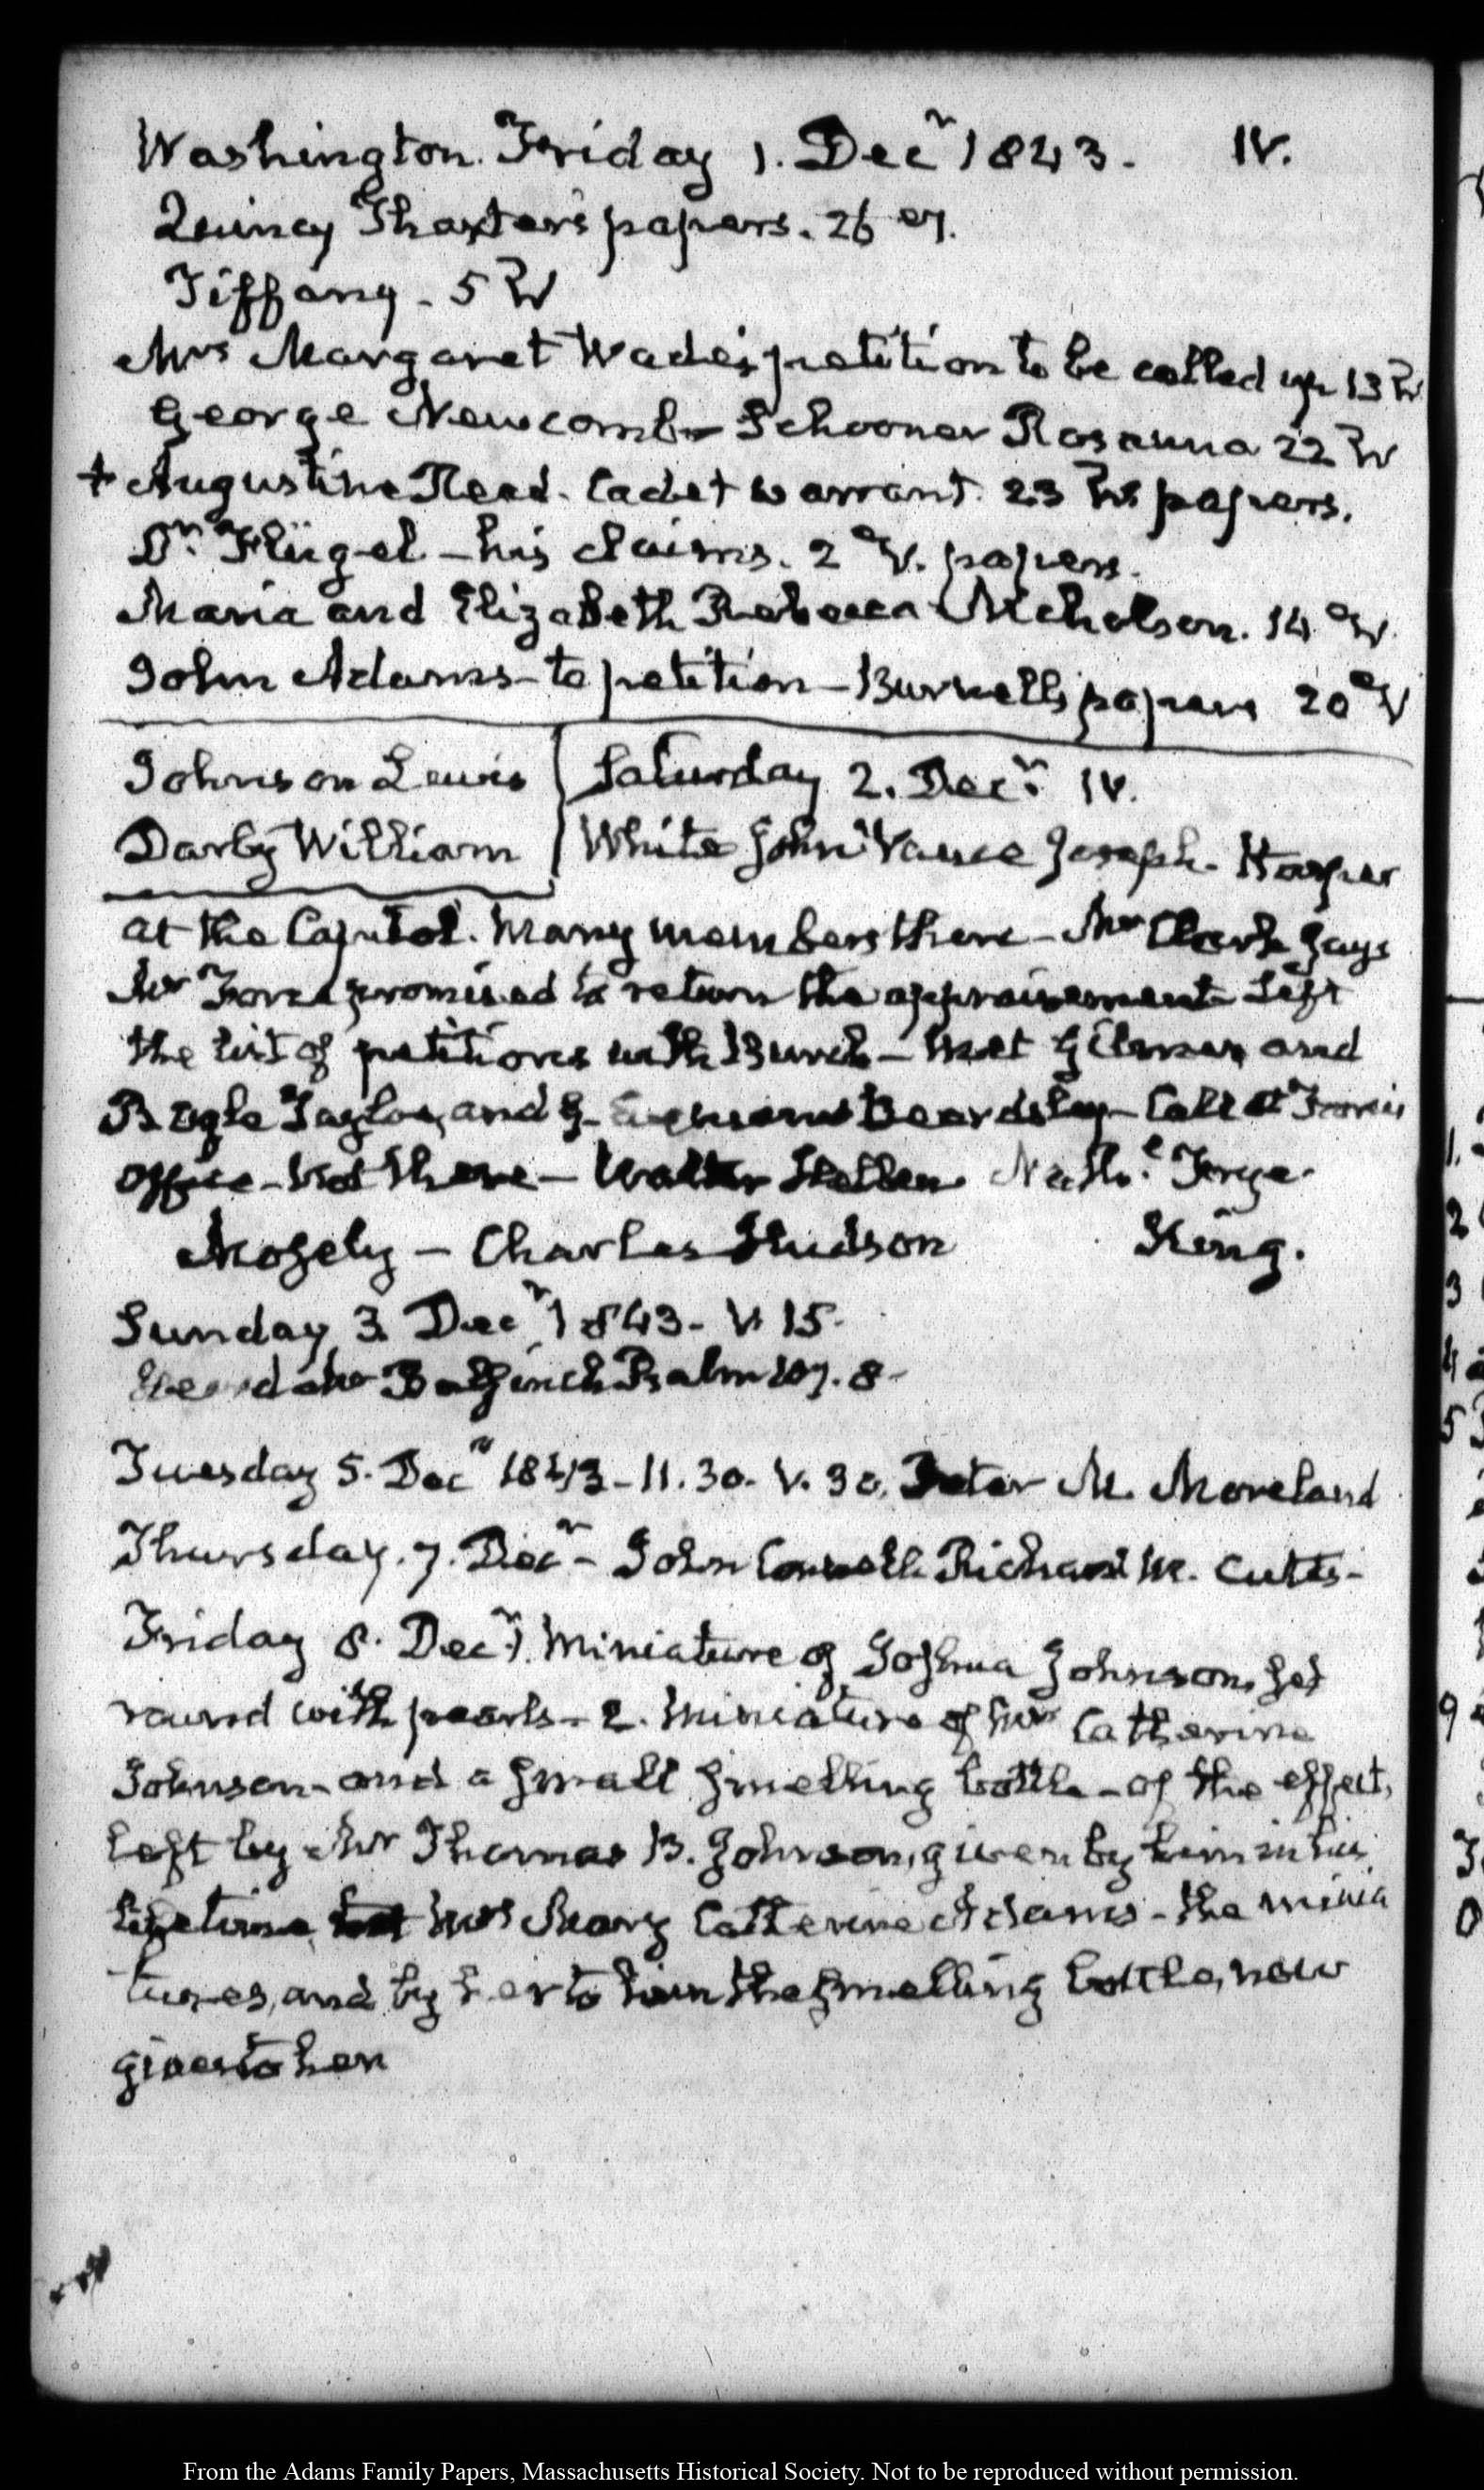 Washington. Friday 1. Decr. 1843. IV.
Quincy Thaxter's papers. 26
Tiffany - 5
Mrs Margaret Wade's petition to be called up 13
George Newcomb Schooner Rosanna 22
+ Augustine Read. Cadet warrant. 23 papers.
Dr. Flügel - his claims. 2 papers.
Maria and Elizabeth Rebecca Nicholson. 14
John Adams - to petition - papers 20
Johnson Lewis
Darby William
Saturday 2. Decr. IV.
White John Vance Joseph -
at the Capitol. Many members there - Mr says
Mr promised to return the appraisement left
the list of petitions with Burch - Met and
B Ogle Tayloe, and Beardsley - Call at
office - Not there - Nathl.
Mosely - Charles Hudson King.
Sunday 3. Decr. 1843 - V. 15.
Heard Mr Bulfinch Psalm 107. 8 -
Tuesday 5. Decr 1843 - 11. 30. V. 30. M. Moreland
Thursday. 7. Decr - John Richard M. Cutts -
Friday 8. Decr. 1. Miniature of Joshua Johnson, set
round with pearls - 2. Miniature of Mrs Catherine
Johnson - and a small smelling bottle - of the effects
left by Mr Thomas B. Johnson, given by him in his
lifetime Mrs Mary Catherine Adams - the minia
tures, and by her to him the smelling bottle, now
given to her
From the Adams Family Papers, Massachusetts Historical Society. Not to be reproduced without permission.